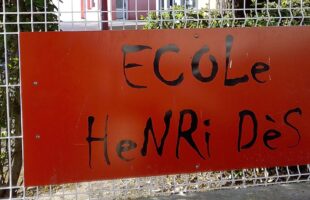 ECOLe
HeNRi DèS